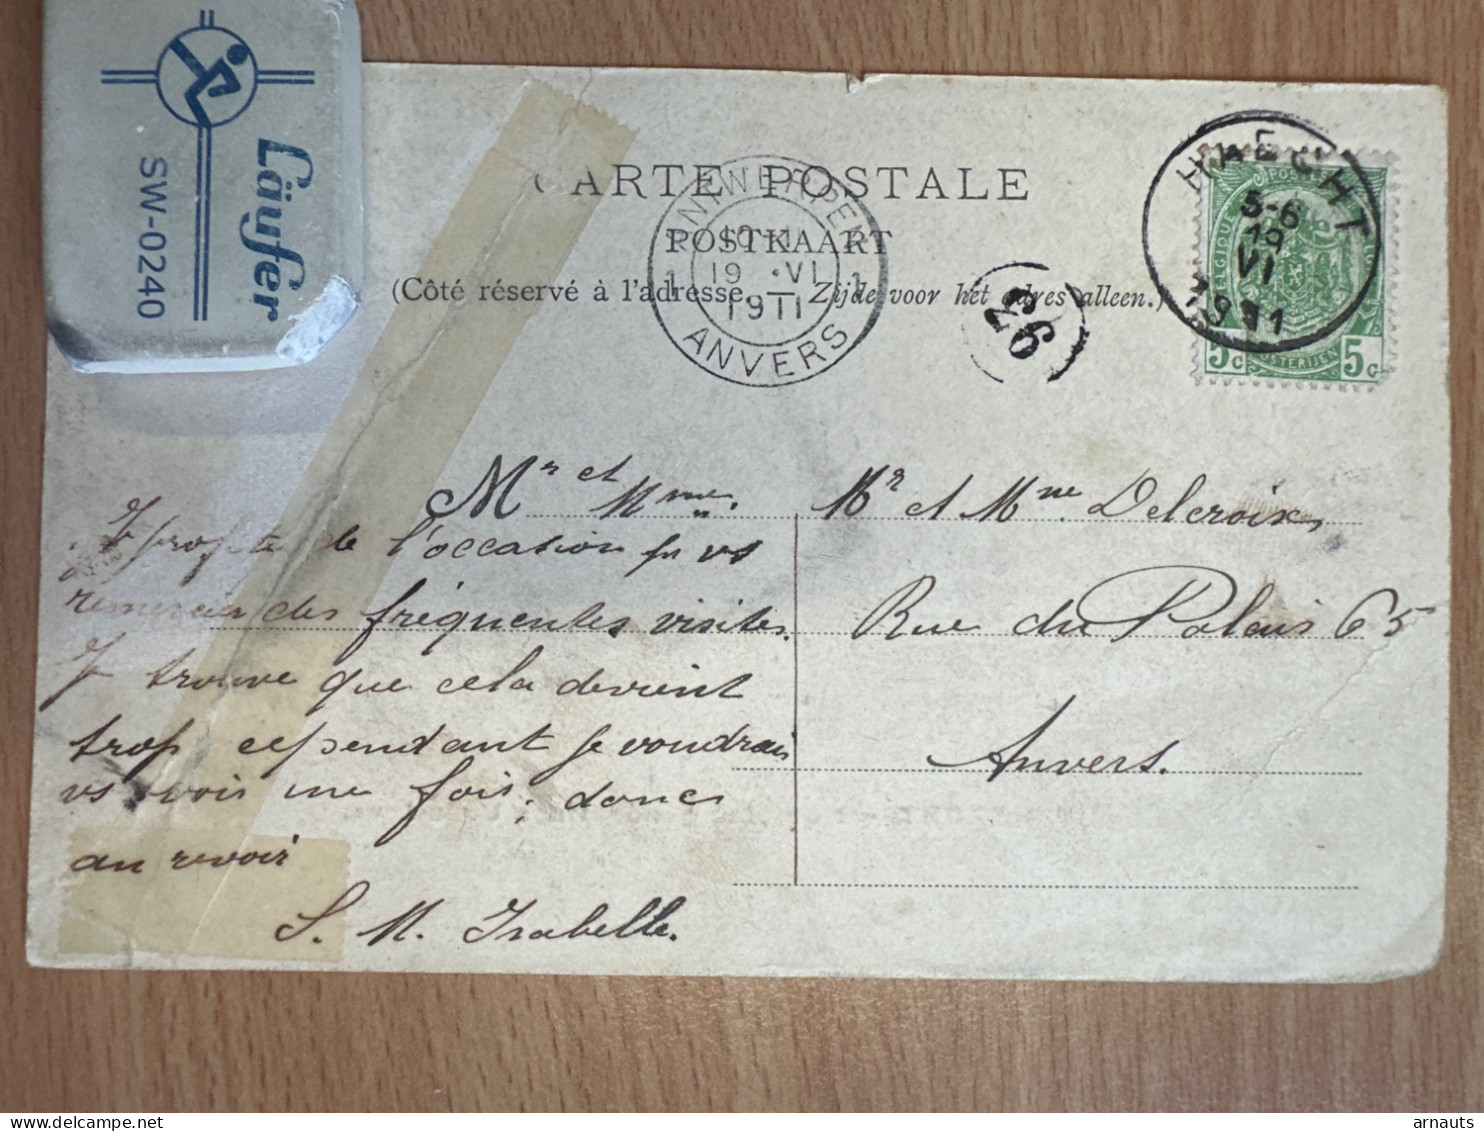 Läufer
SW-0240
CARTE POSTALE
POSTKAART
(Côté réservé à l'adresse. Zijde voor het adres alleen.)
ANTWERPEN
1 19 VI 1
1911
ANVERS
HAECHT
5-6
19
VI
1911
BELGIQUE
5c 5c
Mr et Mme.
Je profite de l'occasion pr vs
remercier des fréquentes visites.
Je trouve que cela devient
trop cependant je voudrais
vs voir une fois, donc
au revoir
S. M. Isabelle.
Mr et Mme Delcroix
Rue du Palais 65
Anvers.
arnauts delcampe.net